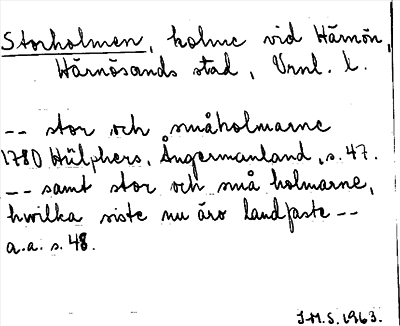 Storholmen, holme vid Härnön,
Härnösands stad, Vrnl. l.
-- stor och småholmarne
1780 Hülphers, Ångermanland, s. 47.
-- samt stor och små holmarne,
hwilka siste nu äro landfaste --
a.a. s. 48.
J.M.S. 1963.